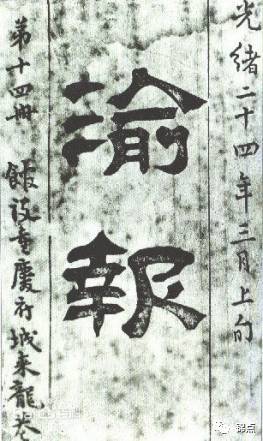 光緒二十四年三月上旬
渝報
第十四冊 館設重慶府城來龍巷